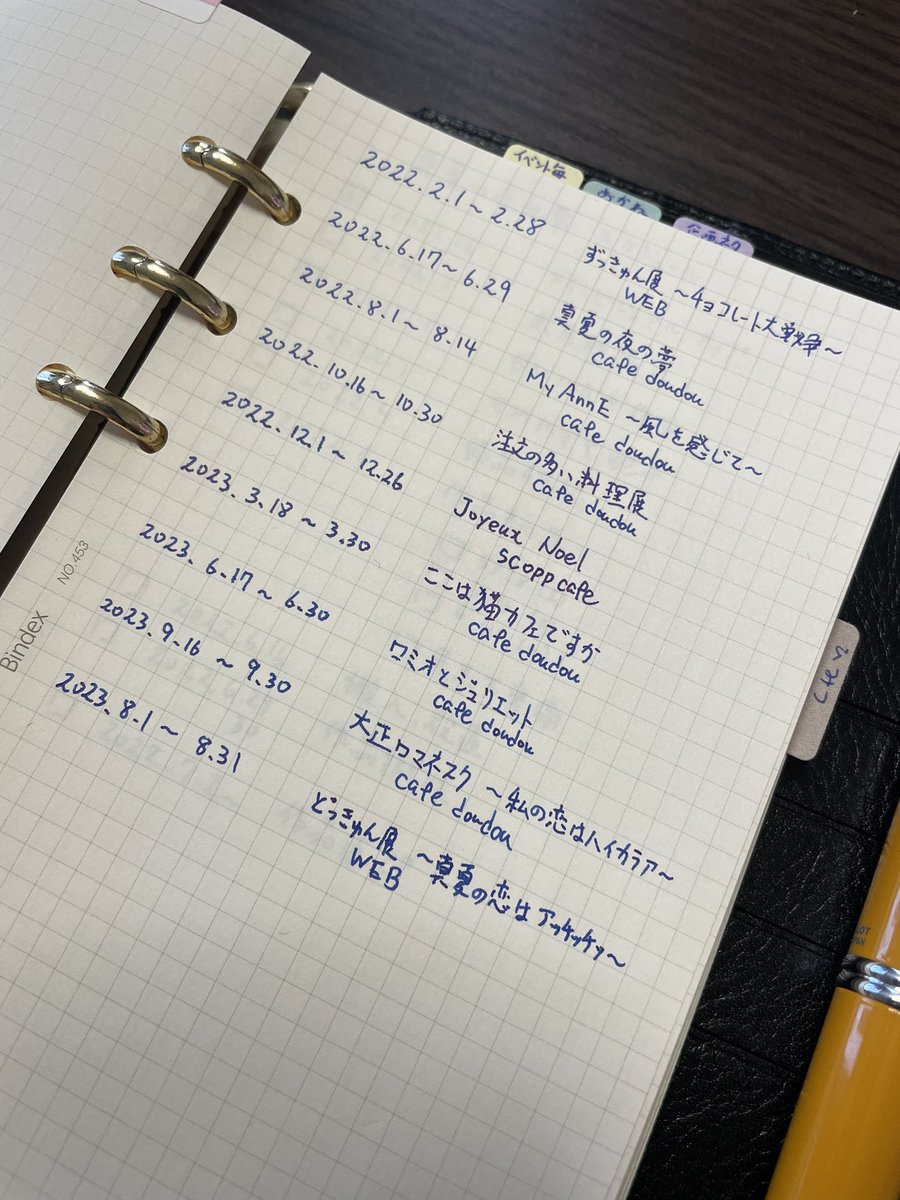 イベント毎
おかね
2022.2.1〜2.28
ずっきゅん展 〜チョコレート大戦争〜
WEB
2022.6.17〜6.29
真夏の夜の夢
cafe doudou
2022.8.1〜8.14
My AnnE 〜風を感じて〜
cafe doudou
2022.10.16〜10.30
注文の多い料理展
cafe doudou
2022.12.1〜12.26
Joyeux Noel
scopp cafe
2023.3.18〜3.30
ここは猫カフェですか
cafe doudou
2023.6.17〜6.30
ロミオとジュリエット
cafe doudou
2023.9.16〜9.30
大正ロマネスク 〜私の恋はハイカラア〜
cafe doudou
2023.8.1〜8.31
どっきゅん展 〜真夏の恋はアッチッチッ〜
WEB
Bindex NO.453